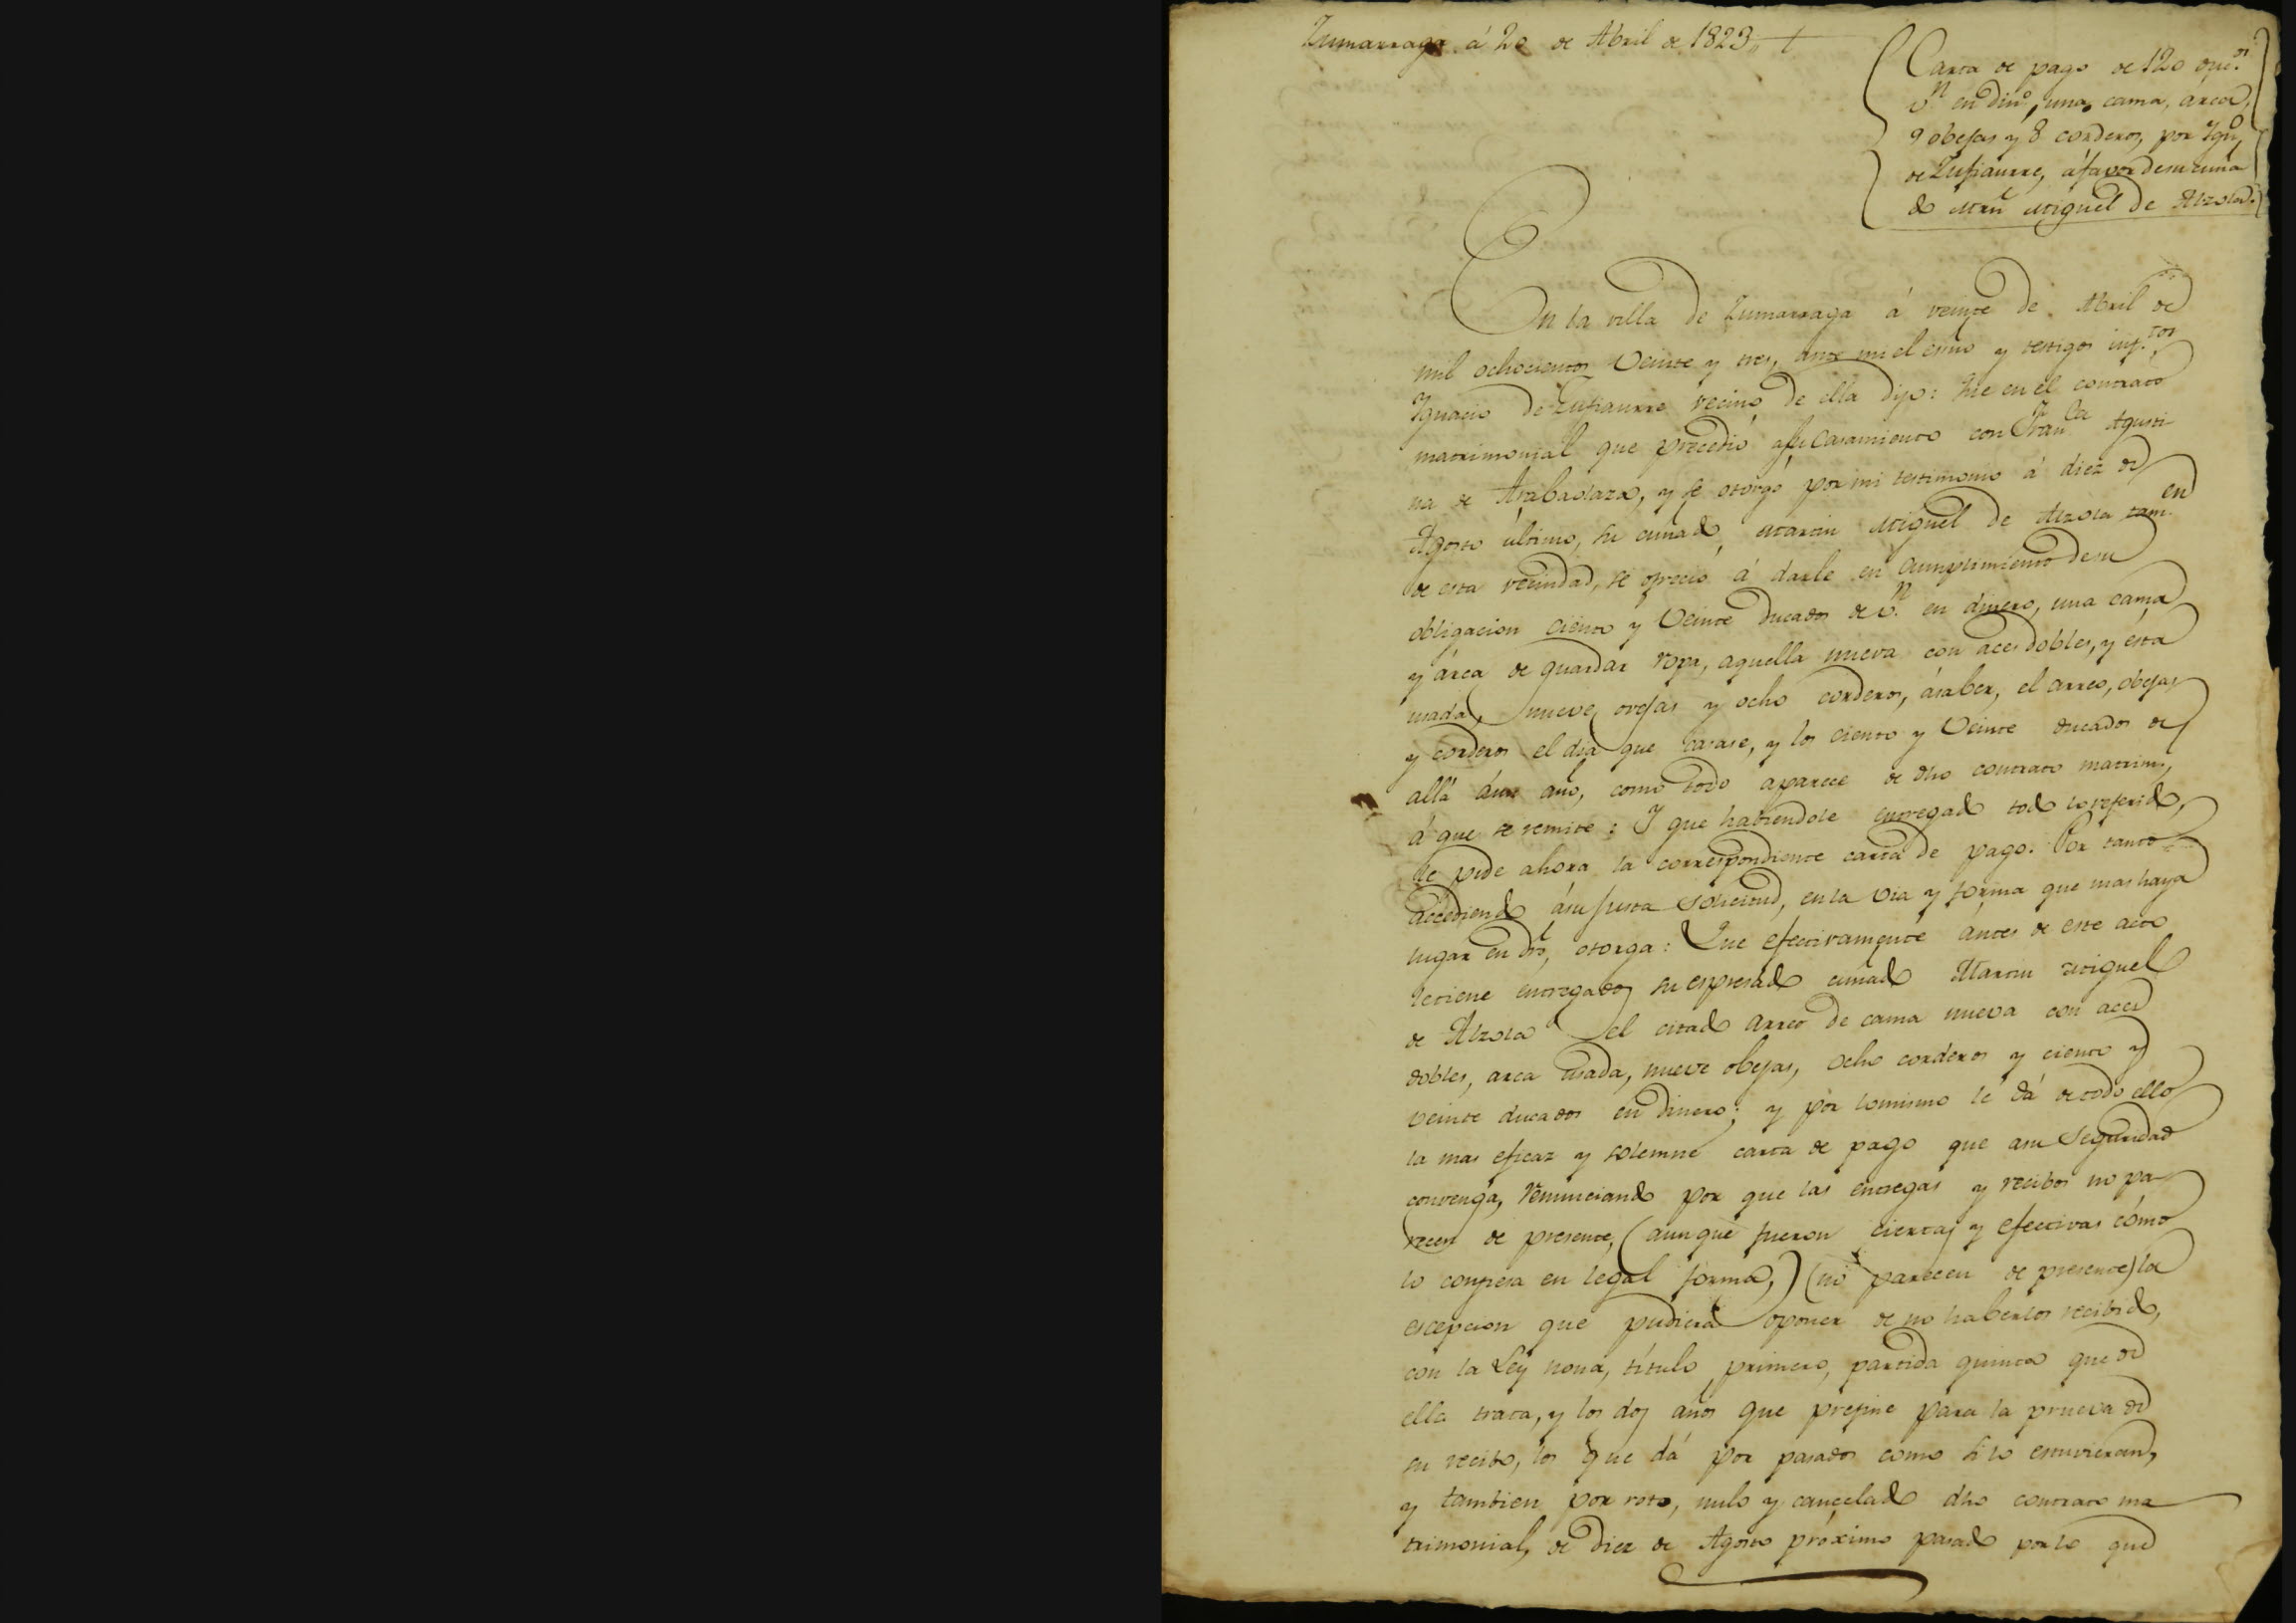 Zumarraga á 20 de Abril de 1823,, †
Carta de pago de 120
v.n en din.o, una cama, arca,
9 obejas y 8 corderos, por Ign.o
de Zufiaurre, á favor de su cuña
do Mrn Miguel de Alzola.
En la villa de Zumarraga á veinte de Abril de
mil ochocientos Veinte y tres, ante mi el esno y testigos inf.tos
Ygnacio de Zufiaurre vecino de ella dijo: Que en el contrato
matrimonial que precedió a su Casamiento con Fran.ca Agusti
na de Arabaolaza, y se otorgó por mi testimonio á diez de
Agosto último, su cuñado Martin Miguel de Alzola tam.en
de esta vecindad, se ofreció á darle en cumplimiento de su
obligacion ciento y Veinte Ducados de v.n en dinero, una cama
y árca de guardar ropa, aquella nueva con aces dobles, y ésta
usada, nueve ovejas y ocho corderos, ásaber, el arreo, obejas
y corderos el dia que casase, y los ciento y Veinte ducados de
allá áun año, como todo aparece de dho contrato matrim.l,
á que se remite: Y que habiendole entregado todo lo referido,
le pide ahora la correspondiente carta de pago. Por tanto
accediendo ásu justa solicitud, en la via y forma que mas haya
lugar en dro, otorga: Que efectivamente ántes de este acto
le tiene entregados su espresado cuñado Martin Miguel
de Alzola el citado arreo de cama nueva con aces
dobles, arca usada, nueve obejas, ocho corderos y ciento y
veinte ducados en dinero; y por lo mismo le dá de todo ello
la mas eficaz y solemne carta de pago que a su seguridad
convenga, renunciando por que las entregas y recibos no pa
recen de presente, (aunque fueron ciertas y efectivas cómo
lo confiesa en legal forma,) (no parecen de presente) la
escepcion que pudiera oponer de no haberlos recibido,
con la Ley nona, título primero, partida quinta que de
ella trata, y los dos años que prefine para la prueva de
su recibo, los que dá por pasados como si lo estuvieran,
y tambien por roto, nulo y cancelado dho contrato ma
trimonial, de diez de Agosto próximo pasado por lo que